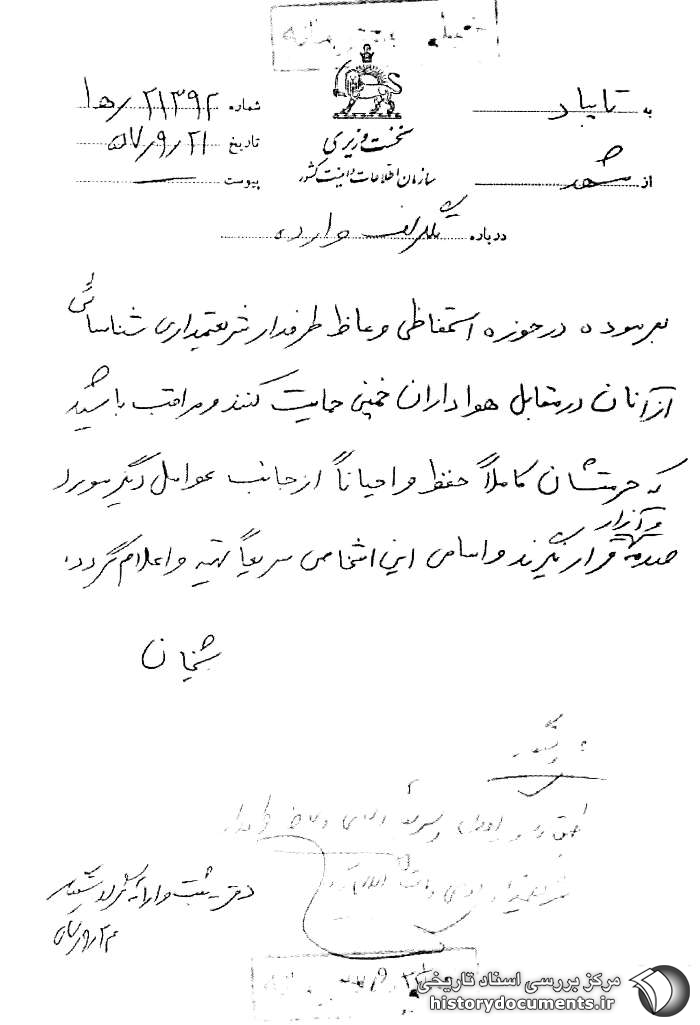 خیلی محرمانه
به تایباد
نخست وزیری
شماره ۲۱۳۹۲/ه‍ ا
از مشهد
سازمان اطلاعات و امنیت کشور
تاریخ ۵۷/۹/۲۱
پیوست —
درباره تلگراف وارده
در حوزه استحفاظی وعاظ طرفدار شریعتمداری شناسائی
از آنان در مقابل هواداران خمینی حمایت کنند و مراقب باشید
که حرمتشان کاملاً حفظ و احیاناً از جانب عوامل دیگر مورد
صدمه و آزار قرار نگیرند و اسامی این اشخاص سریعاً تهیه و اعلام گردد.
شیخان
دفتر ثبت و
مرکز بررسی اسناد تاریخی
historydocuments.ir